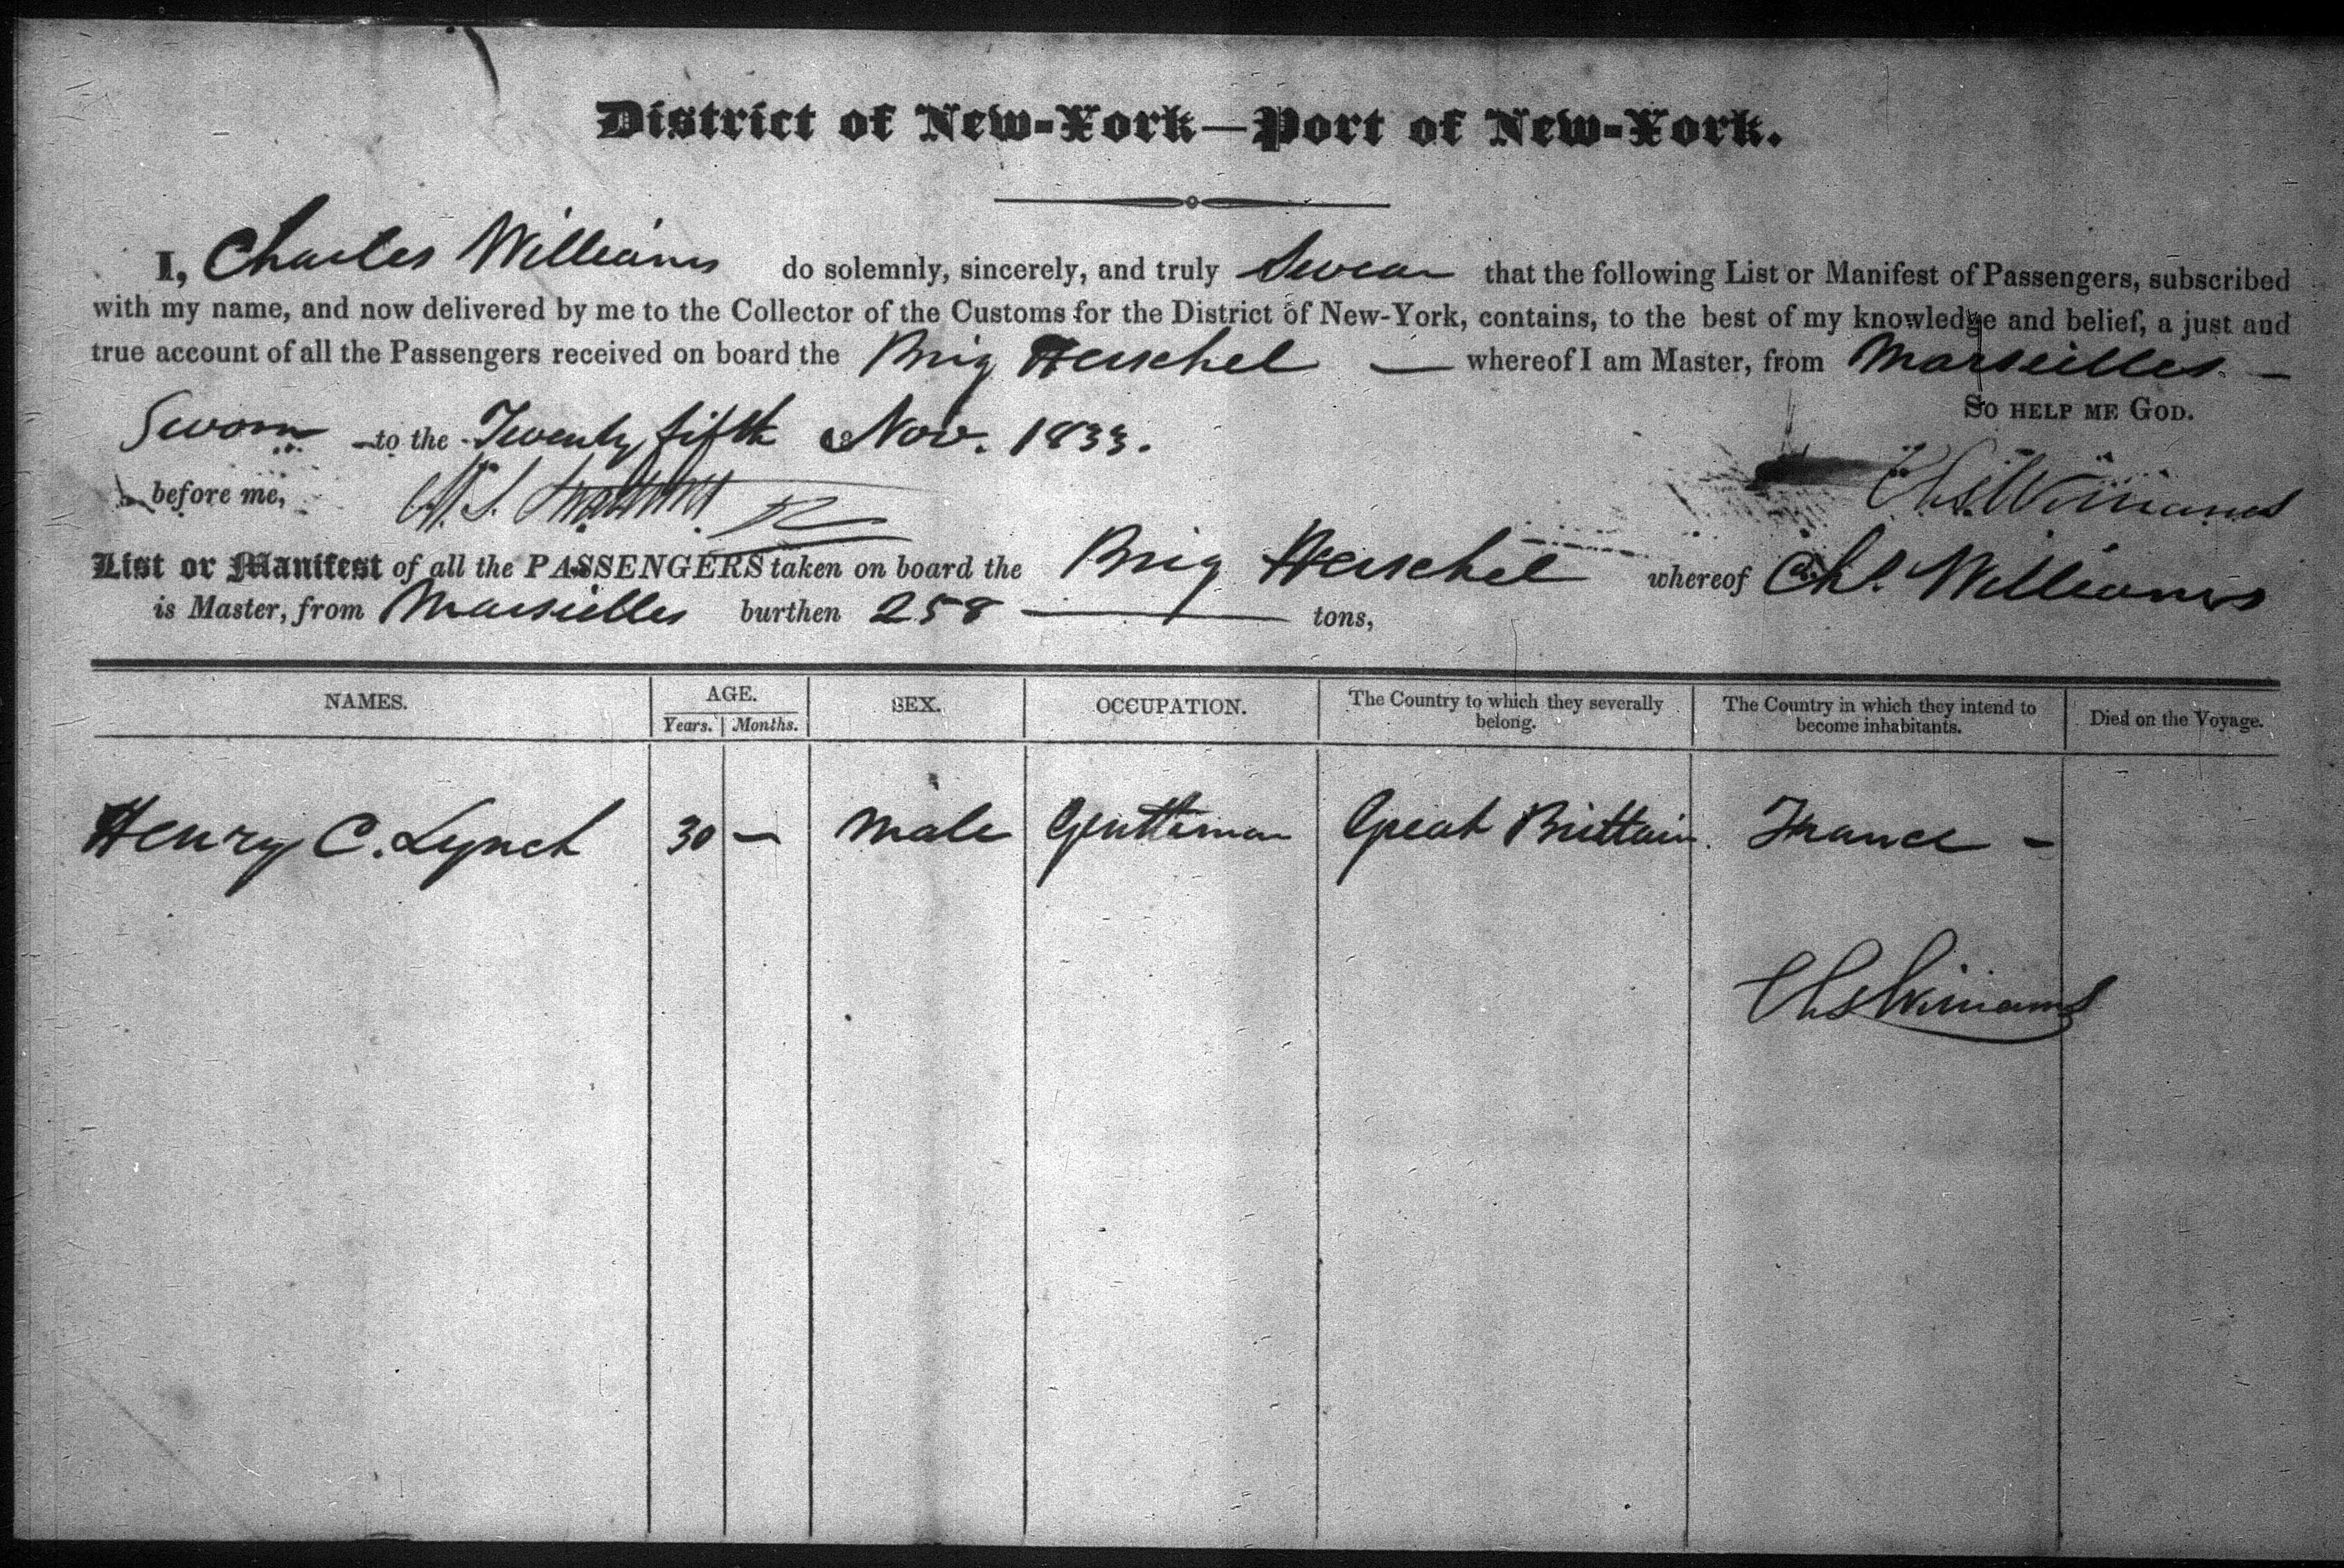 District of New-York—Port of New-York.
I, Charles Williams do solemnly, sincerely, and truly Swear that the following List or Manifest of Passengers, subscribed
with my name, and now delivered by me to the Collector of the Customs for the District of New-York, contains, to the best of my knowledge and belief, a just and
true account of all the Passengers received on board the Brig Herschel — whereof I am Master, from Marseilles —
So help me God.
Sworn to the Twenty fifth Nov. 1833.
before me, Chs. Williams
List or Manifest of all the PASSENGERS taken on board the Brig Herschel whereof Chs. Williams
is Master, from Marseilles burthen 258 — tons,
NAMES. AGE. SEX. OCCUPATION. The Country to which they severally belong. The Country in which they intend to become inhabitants. Died on the Voyage.
Years. Months.
Henry C. Lynch 30 — Male Gentleman Great Brittain. France —
Chs Williams